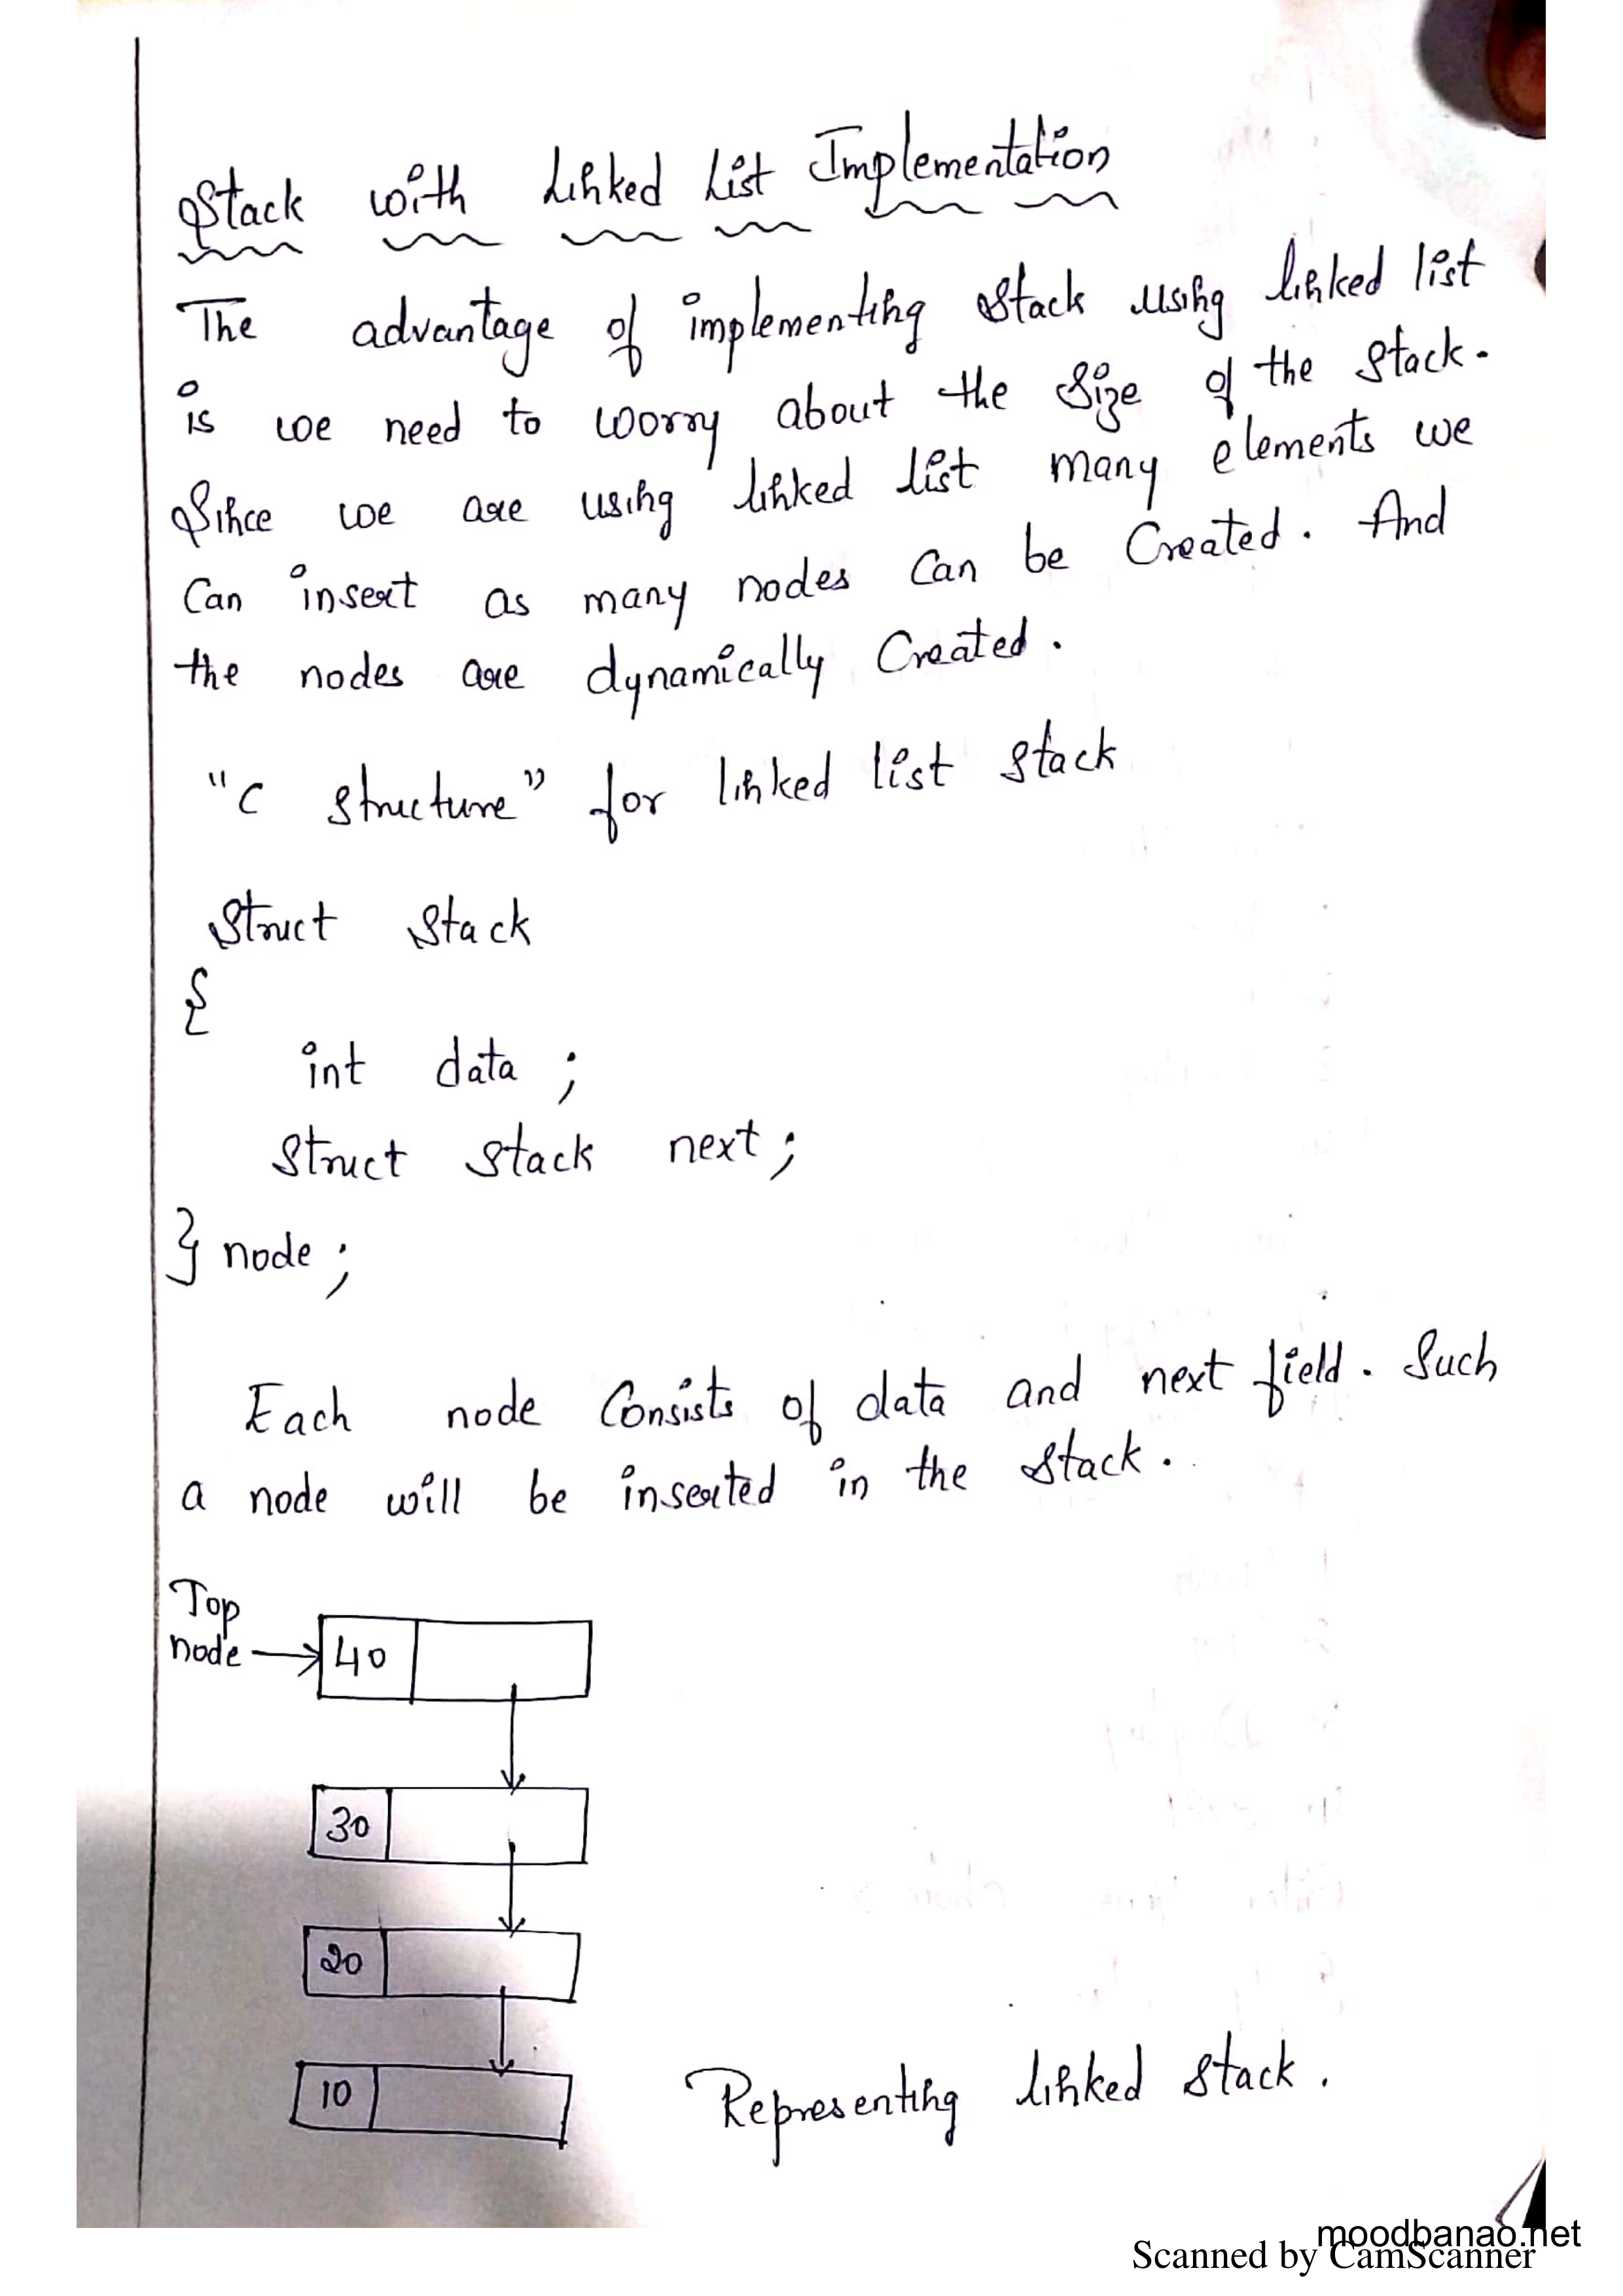 Stack with Linked List Implementation
The advantage of implementing stack using linked list
is we need to worry about the size of the stack.
Since we are using linked list many elements we
Can insert as many nodes Can be Created. And
the nodes are dynamically Created.
"C structure" for linked list stack
Struct Stack
{
int data ;
Struct stack next ;
} node ;
Each node Consists of data and next field. Such
a node will be inserted in the stack.
Top
node
40
30
20
10
Representing linked stack.
moodbanao.net
Scanned by CamScanner